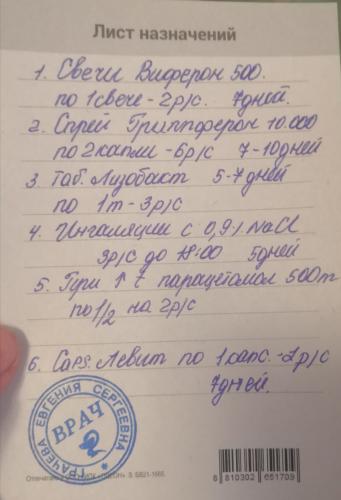 Лист назначений
1. Свечи Виферон 500.
по 1 свече - 2р/с. 7 дней.
2. Спрей Гриппферон 10.000
по 2 капли - 6р/с 7-10 дней
3. Таб. Лизобакт 5-7 дней
по 1т - 3р/с
4. Ингаляции с 0,9% NaCl
3р/с до 18:00 5 дней
5. При ↑ t парацетомол 500m
по 1/2 на 2р/с
6. Caps. Левит по 1 капс. - р/с
7 дней.
ГРАЧЕВА ЕВГЕНИЯ СЕРГЕЕВНА
ВРАЧ
Отпечатано
8 810302 651709